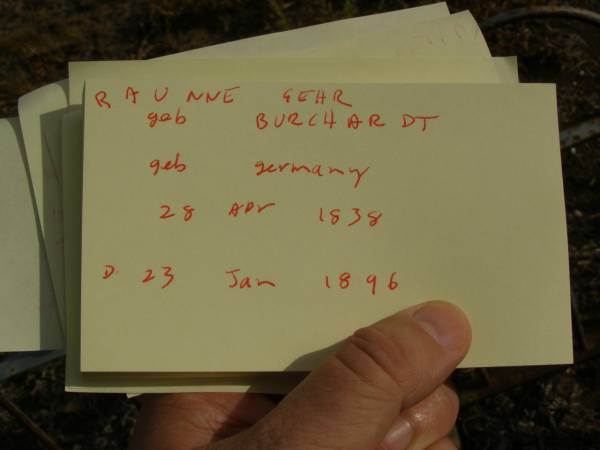 RAUNNE GEHR
geb BURCHARDT
geb germany
28 Apr 1838
D. 23 Jan 1896